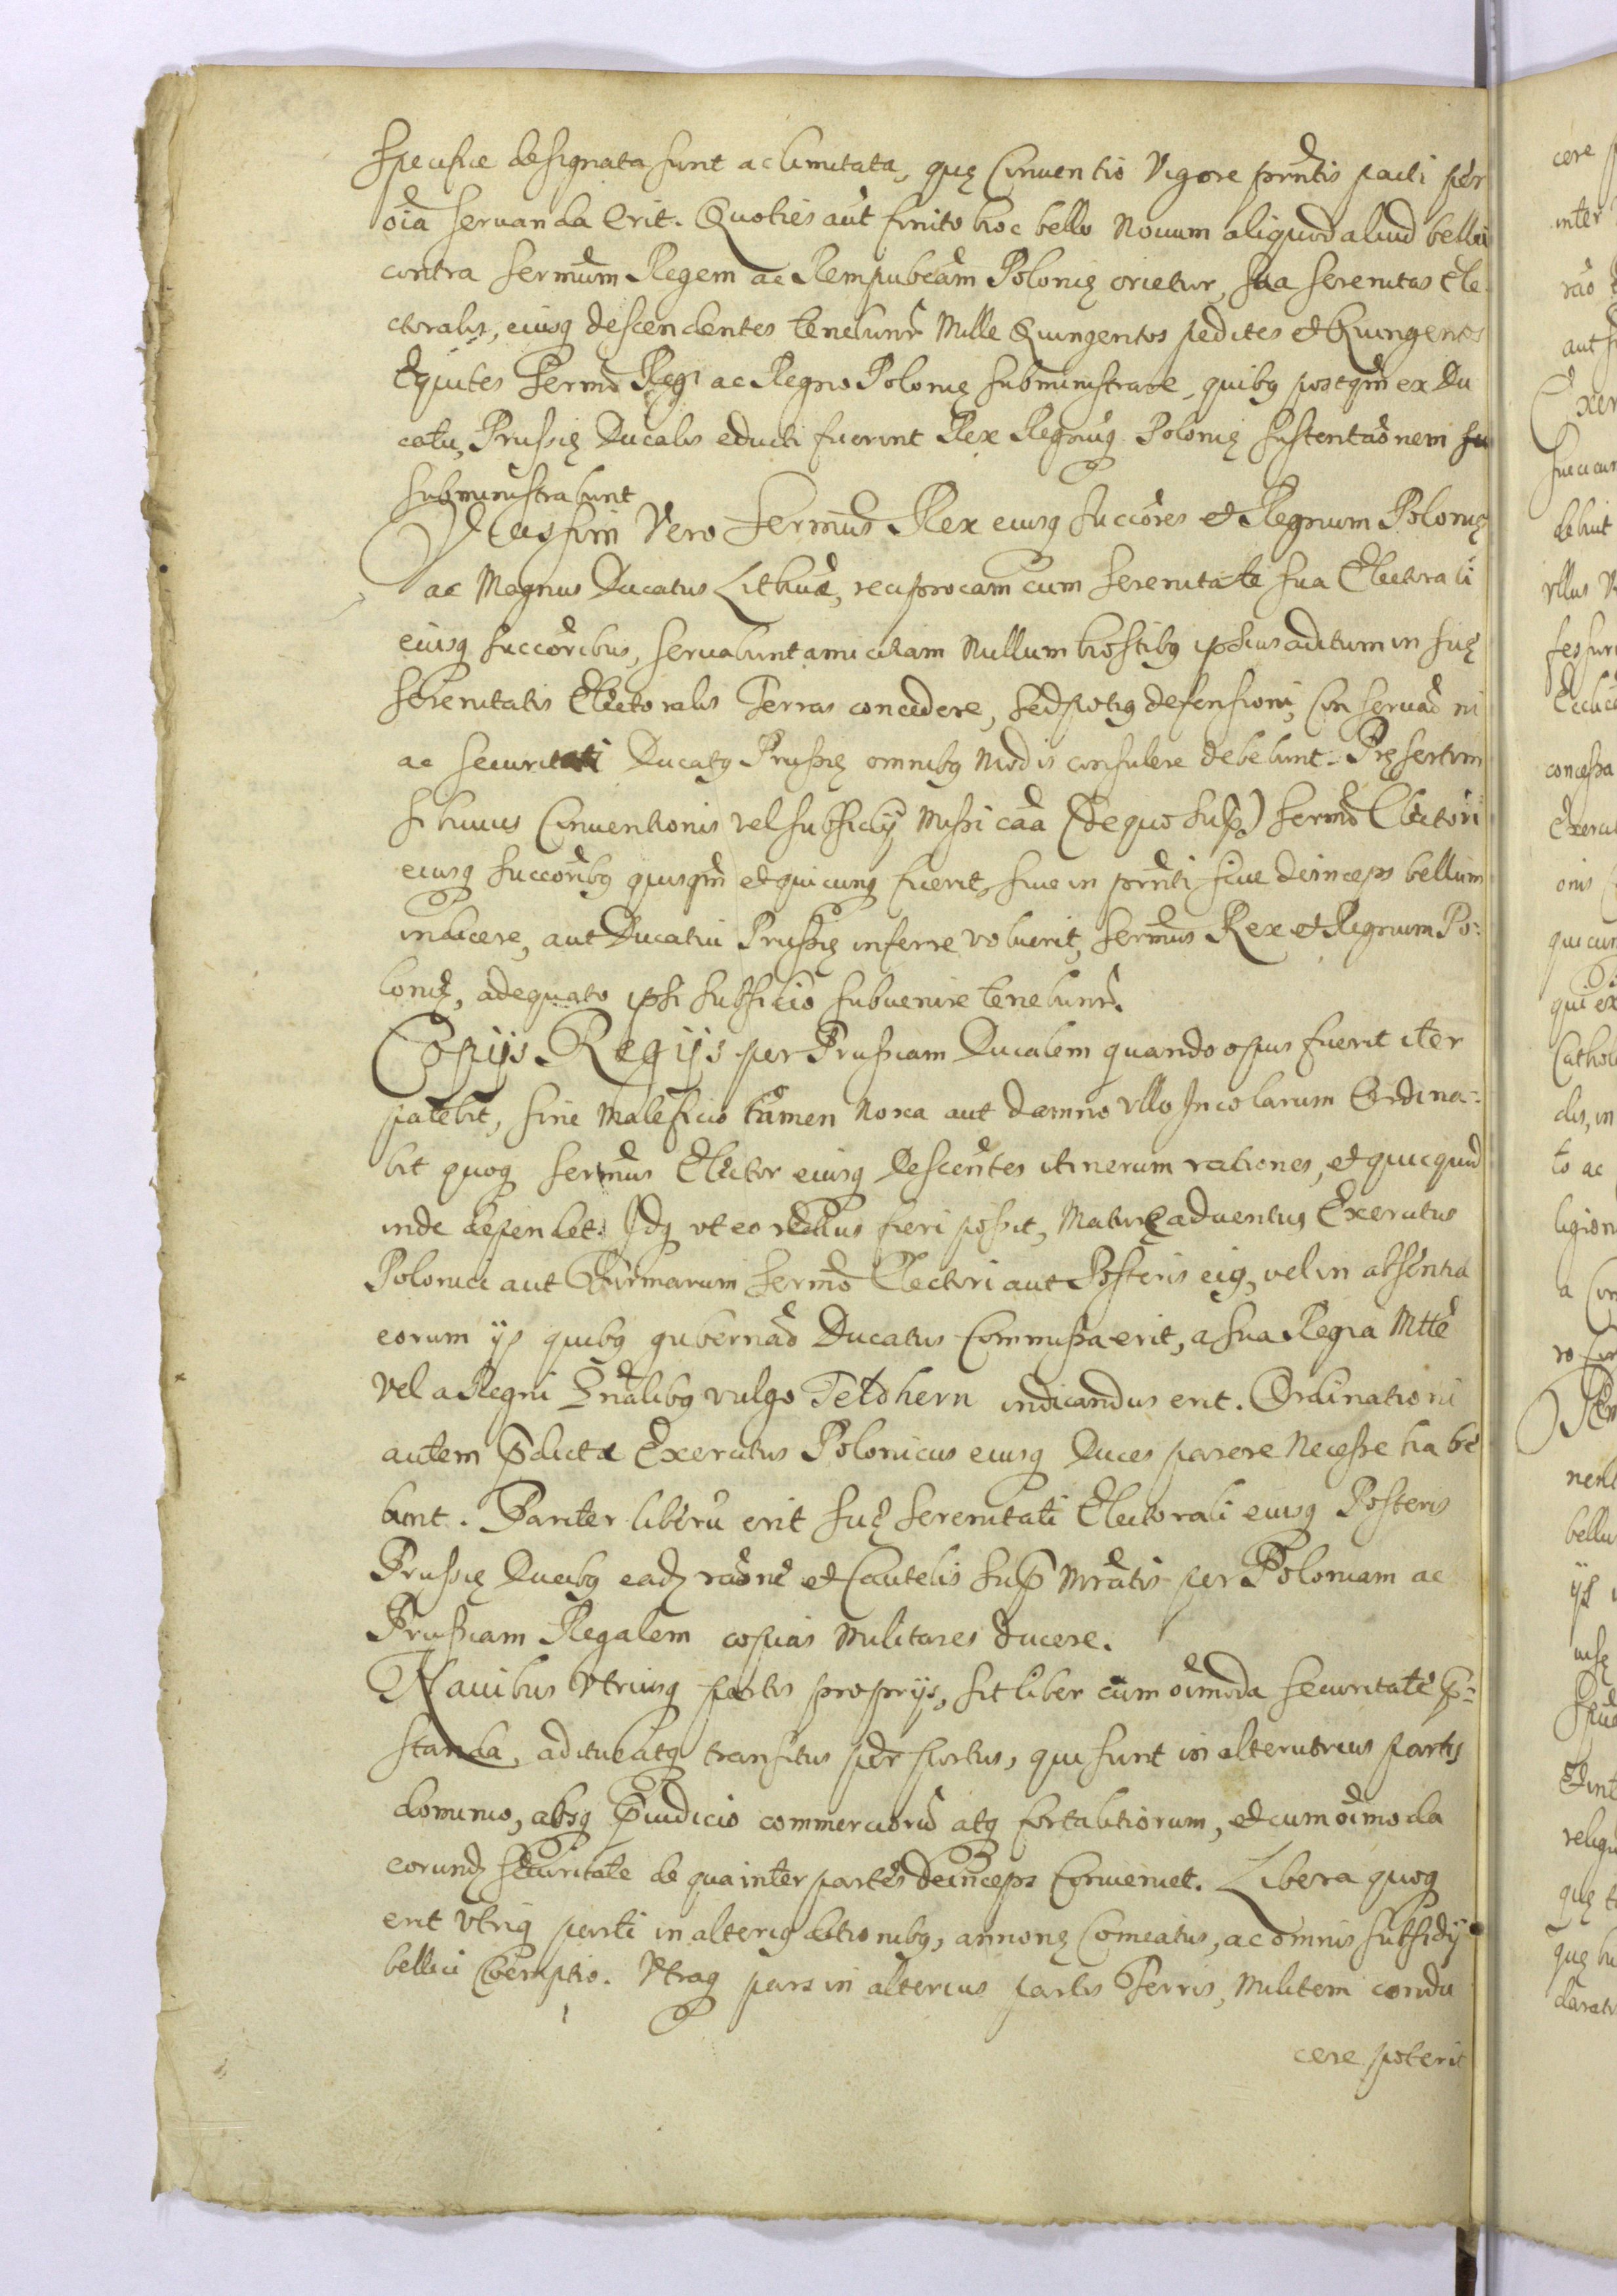 specifice designata sunt ac limitata, quę Conventio Vigore prñtis pacti per
oĩa servanda erit. Quoties aũt finito hoc bello Nouum aliquod aliud bellũ
contra Sermũm Regem ac Rempubcãm Polonię orietur, sua Serenitas Ele
ctoralis, eiusq descendentes tenebunr̃ Mille Quingentos pedites et Quingentos
Equites Sermõ Regi ac Regno Polonię subministrare, quibq postqm̃ ex Du
catu, Prussię Ducalis educti fuerint Rex Regnuq Polonię sustentaõnem su
subministrabunt
Vicissim Vero Sermũs Rex eiusq Succõres et Regnum Polonię
ac Magnus Ducatus Lithuã, reciprocam cum Serenitate sua Electorali
eiusq succõribus, servabunt amicitiam Nullum hostibq ipsius aditum in suę
Serenitatis Electoralis Terras concedere, sed potiq defensioni, Conservaõni
ac securitati Ducatq Prussię omnibq Modis consulere debebunt. Pręsertim
si huius Conventionis vel subsidij Missi caã (de quo sup̃) Sermõ Electori
eiusq succorĩbq quisqm̃ et quicunq fuerit, sive in prñti sive deinceps bellum
indicere, aut Ducatui Prussię inferre voluerit, Sermũs Rex et Regnum Po:
lonię, adequato ipsi subsidio subvenire tenebunr̃.
Copijs Regijs per Prussiam Ducalem quando opus fuerit iter
patebit, sine Maleficio tamen Noxa aut damno ullo Incolarum Ordina=
bit quoq Sermũs Elector eiusq Descentes itinerum rationes, et quicquid
inde dependet. Idq ut eo rectius fieri possit, Mature adventus Exercitus
Polonici aut Turmarum Sermõ Electori aut Posteris eiq, vel in absentia
eorum ijs quibq gubernaõ Ducatus Commissa erit, a sua Regia Mtte
Vel a Regni Gñalibq vulgo Feldhern indicandus erit. Ordinationi
autem p̃dicta Exercitus Polonicus eiusq Duces parere Necesse habe
bunt. Pariter liberũ erit suę Serenitati Electorali eiusq Posteris
Prussię Ducibq eadz raõne et Cautelis sup̃ Mrãtis per Poloniam ac
Prussiam Regalem copias Militares ducere.
Navibus Vtriusq partis proprijs, sit liber cum oĩmoda securitate p̃=
standa, aditus atq transitus per portus, qui sunt in alterutrius partis
dominio, absq p̃iudicio commerciorũ atq fortalitiorum, et cum oĩmoda
eorundz securitate de qua inter partes deinceps Conveniet. Libera quoq
erit Vtriq parti in alteriq ditionibq, annonę Comeatus, ac omnis subsidij
bellici Coemptio. Vtraq pars in alterius partis Terris, Militem condu
cere poterit